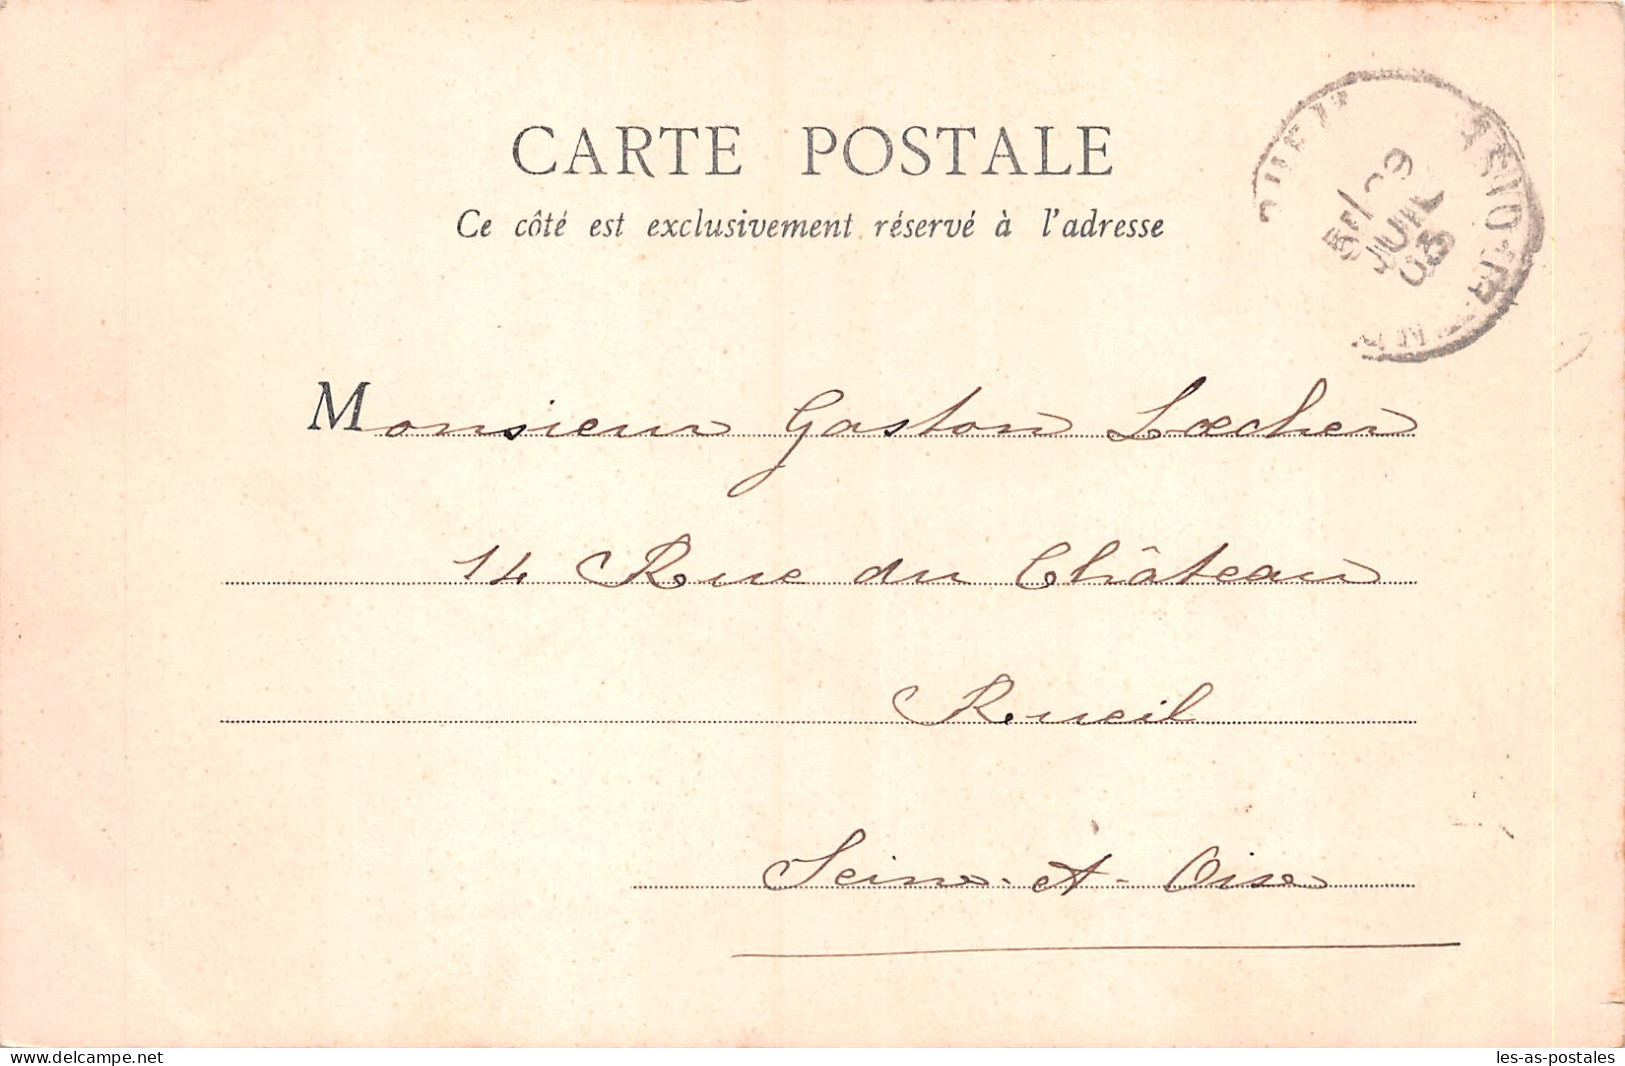 CARTE POSTALE
Ce côté est exclusivement réservé à l'adresse
JUIL
03
Monsieur Gaston Lœcher
14 Rue du Château
Rueil
Seine-et-Oise
www.delcampe.net
les-as-postales